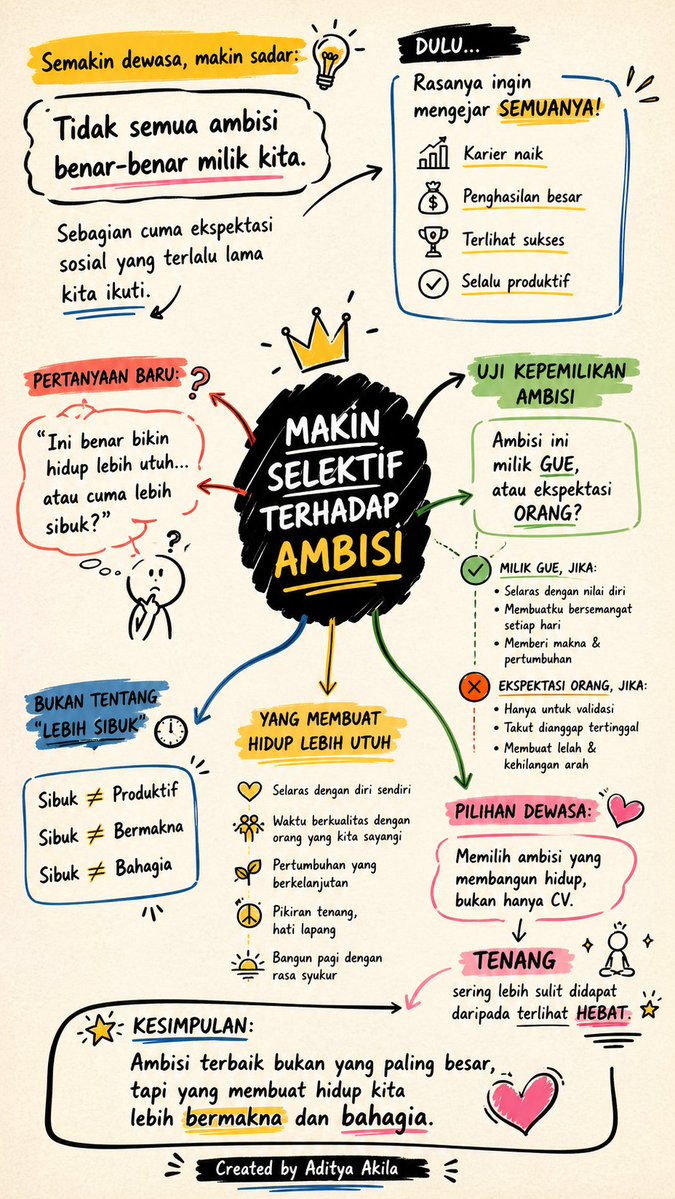 Semakin dewasa, makin sadar:
Tidak semua ambisi
benar-benar milik kita.
Sebagian cuma ekspektasi
sosial yang terlalu lama
kita ikuti.
DULU...
Rasanya ingin
mengejar SEMUANYA!
Karier naik
$
Penghasilan besar
Terlihat sukses
Selalu produktif
MAKIN
SELEKTIF
TERHADAP
AMBISI
PERTANYAAN BARU:
?
"Ini benar bikin
hidup lebih utuh...
atau cuma lebih
sibuk?"
?
UJI KEPEMILIKAN
AMBISI
Ambisi ini
milik GUE,
atau ekspektasi
ORANG?
MILIK GUE, JIKA:
• Selaras dengan nilai diri
• Membuatku bersemangat
setiap hari
• Memberi makna &
pertumbuhan
EKSPEKTASI ORANG, JIKA:
• Hanya untuk validasi
• Takut dianggap tertinggal
• Membuat lelah &
kehilangan arah
BUKAN TENTANG
"LEBIH SIBUK"
Sibuk ≠ Produktif
Sibuk ≠ Bermakna
Sibuk ≠ Bahagia
YANG MEMBUAT
HIDUP LEBIH UTUH
Selaras dengan diri sendiri
Waktu berkualitas dengan
orang yang kita sayangi
Pertumbuhan yang
berkelanjutan
Pikiran tenang,
hati lapang
Bangun pagi dengan
rasa syukur
PILIHAN DEWASA:
Memilih ambisi yang
membangun hidup,
bukan hanya CV.
TENANG
sering lebih sulit didapat
daripada terlihat HEBAT.
KESIMPULAN:
Ambisi terbaik bukan yang paling besar,
tapi yang membuat hidup kita
lebih bermakna dan bahagia.
Created by Aditya Akila